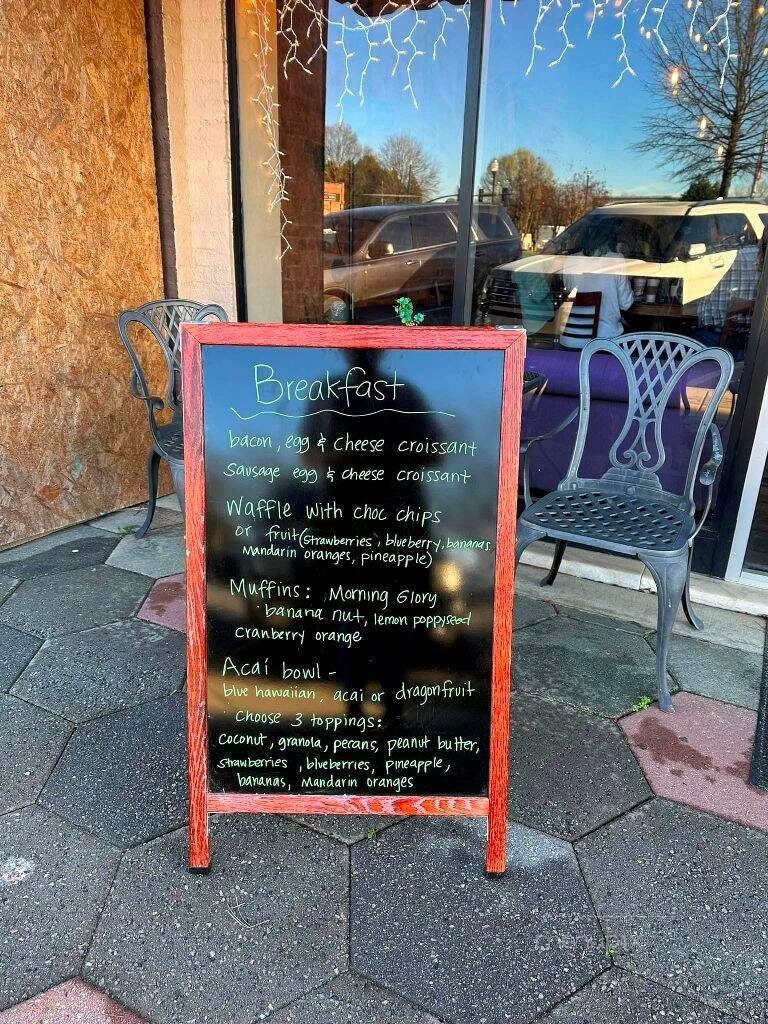 Breakfast
bacon, egg & cheese croissant
Sausage egg & cheese croissant
Waffle with choc chips
or fruit (strawberries, blueberry, bananas
Mandarin oranges, pineapple)
Muffins: Morning Glory
banana nut, lemon poppyseed
cranberry orange
Acaí bowl -
blue hawaiian, acai or dragonfruit
Choose 3 toppings:
Coconut, granola, pecans, peanut butter,
strawberries, blueberries, pineapple,
bananas, Mandarin oranges